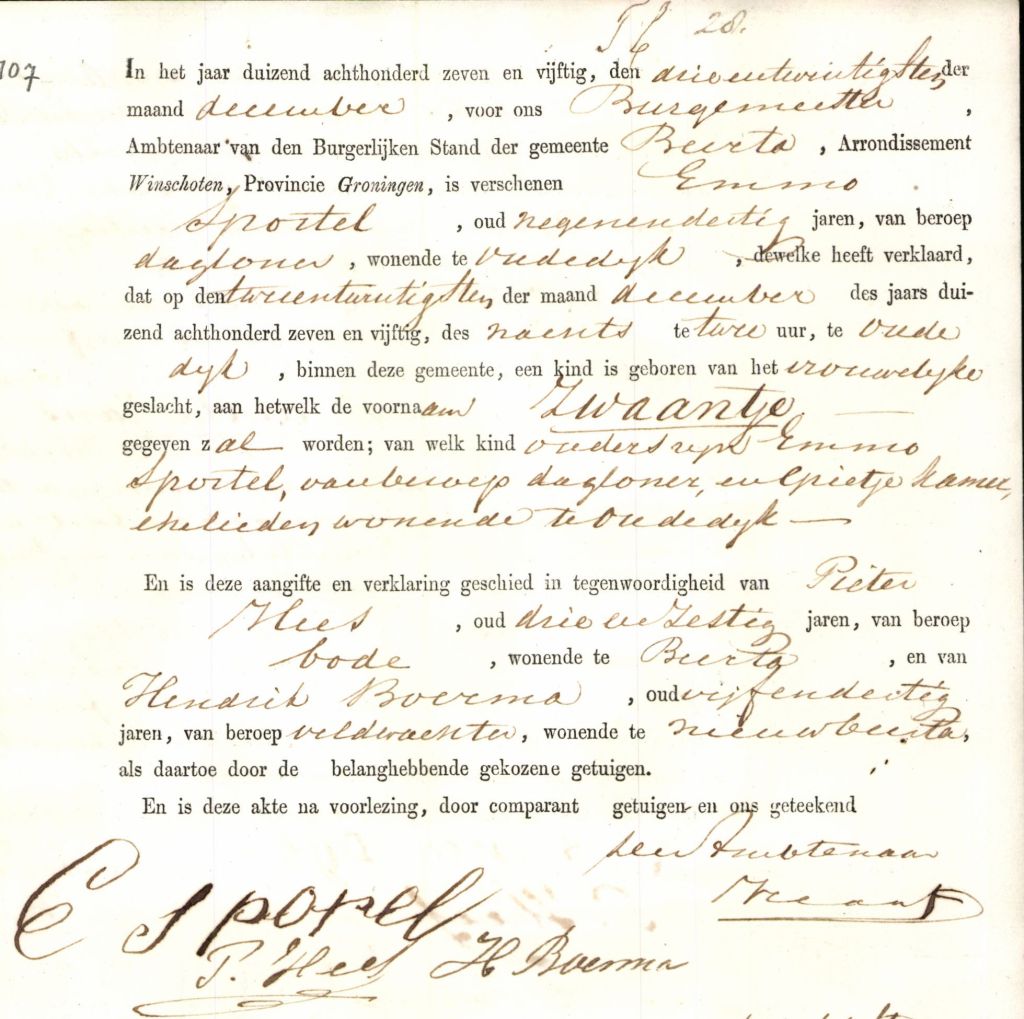 28.
107
In het jaar duizend achthonderd zeven en vijftig, den drieentwintigsten der
maand december , voor ons Burgemeester ,
Ambtenaar van den Burgerlijken Stand der gemeente Beerta , Arrondissement
Winschoten, Provincie Groningen, is verschenen Emmo
Sportel , oud negenendertig jaren, van beroep
dagloner , wonende te Oudedyk , dewelke heeft verklaard,
dat op den tweeentwintigsten der maand december des jaars dui-
zend achthonderd zeven en vijftig, des nachts te twee uur, te Oude
dyk , binnen deze gemeente, een kind is geboren van het vrouwelyke
geslacht, aan hetwelk de voornaam Zwaantje
gegeven zal worden; van welk kind ouders zyn Emmo
Sportel, van beroep dagloner, en Epietje Kamer,
ehelieden, wonende te Oudedyk
En is deze aangifte en verklaring geschied in tegenwoordigheid van Pieter
Hees , oud drie en zestig jaren, van beroep
bode , wonende te Beerta , en van
Hendrik Boerma , oud vijfendertig
jaren, van beroep veldwachter, wonende te nieuwbeerta,
als daartoe door de belanghebbende gekozene getuigen.
En is deze akte na voorlezing, door comparant getuigen en ons geteekend
Ambtenaar
E Sportel
P. Hees H Boerma